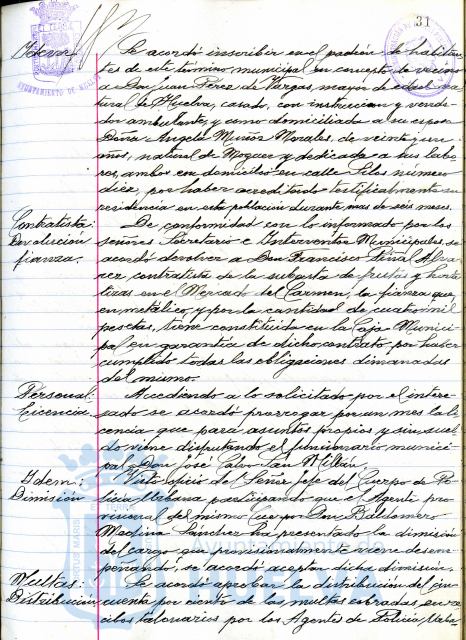 31
Idem:
Se acordó inscribir en el padrón de habitan-
tes de este termino municipal en concepto de vecinos
a Don Juan Perez de Vargas, mayor de edad, na-
tural de Huelva, casado, con instruccion y vende-
dor ambulante, y como domiciliada a su esposa
Doña Angela Muñoz Morales, de veintiun
años, natural de Moguer y dedicada a sus labo-
res, ambos con domicilio en calle Silos número
diez, por haber acreditado testificalmente su
residencia en esta población durante mas de seis meses.
Contratista:
Devolución
fianza.
De conformidad con lo informado por los
señores Secretario e Interventor Municipales, se
acordó devolver a Don Francisco Peñal Alva-
rez contratista de la subasta de frutas y horta-
lizas en el Mercado del Carmen, la fianza que
en metálico y por la cantidad de cuatro mil
pesetas, tiene constituida en la Caja Munici-
pal en garantia de dicho contrato por haber
cumplido todas las obligaciones dimanadas
del mismo.
Personal:
Licencia.
Accediendo a lo solicitado por el intere-
sado se acordó prorrogar por un mes la li-
cencia que para asuntos propios y sin suel-
do viene disfrutando el funcionario munici-
pal Don José Calvo San Millán.
Idem:
Dimisión
Visto oficio del Señor Jefe del Cuerpo de Po-
licia Urbana participando que el Agente pro-
visional del mismo Cuerpo Don Baldomero
Medina Sánchez ha presentado la dimisión
del cargo que provisionalmente viene desem-
peñando, se acordó aceptar dicha dimisión.
Multas:
Distribución
Se acordó aprobar la distribución del cin-
cuenta por ciento de las multas cobradas en re-
cibos talonarios por los Agentes de Policia Urba-
AYUNTAMIENTO DE
Ayuntamiento de
HUELVA